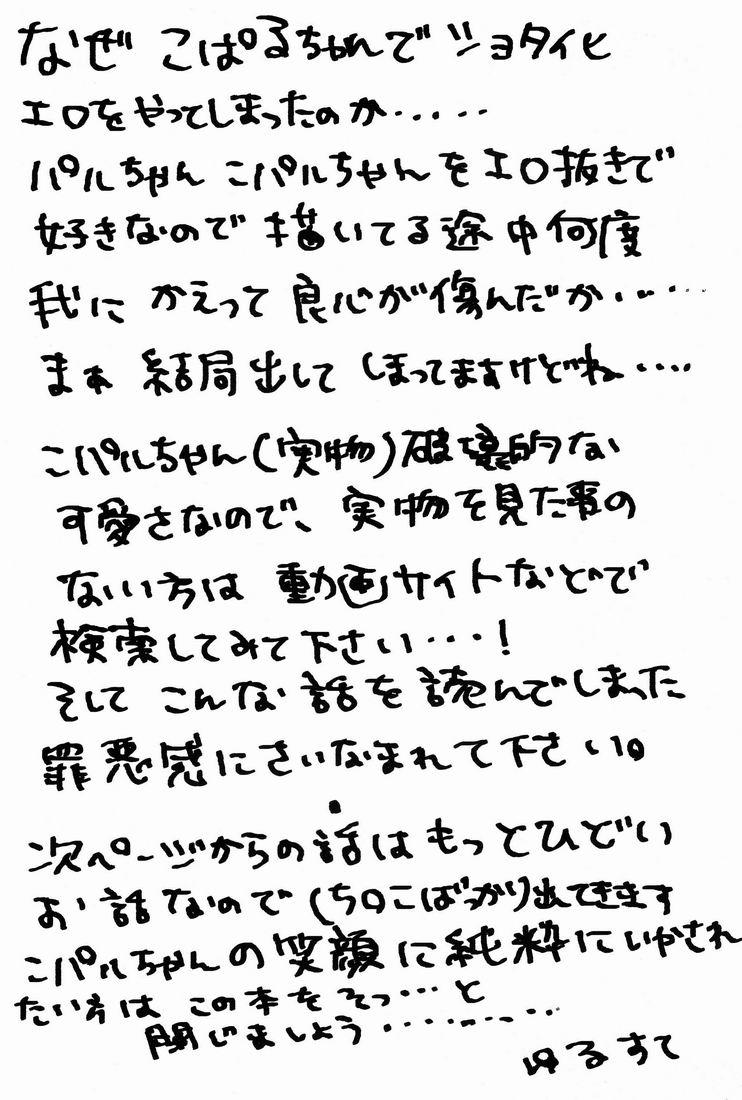 なぜ こぱるちゃんで ショタイヒ
エロをやってしまったのか‥‥‥
パルちゃん こパルちゃんをエロ抜きで
好きなので 描いてる途中何度
我に かえって 良心が傷んだか‥‥‥
まぁ 結局出して しまってますけどね‥‥
こパルちゃん(実物)破壊的な
可愛さなので、実物を見た事の
ない方は 動画サイトなどで
検索してみて下さい・・・!
そして こんな話を読んでしまった
罪悪感にさいなまれて下さい。
・
次ページからの話は もっとひどい
お話なので(ち〇こばっかり)出てきます
こパルちゃんの笑顔に純粋にいかされ
たい方は この本を そっ・・・と
閉じましょう‥‥‥‥‥
ゆるすて